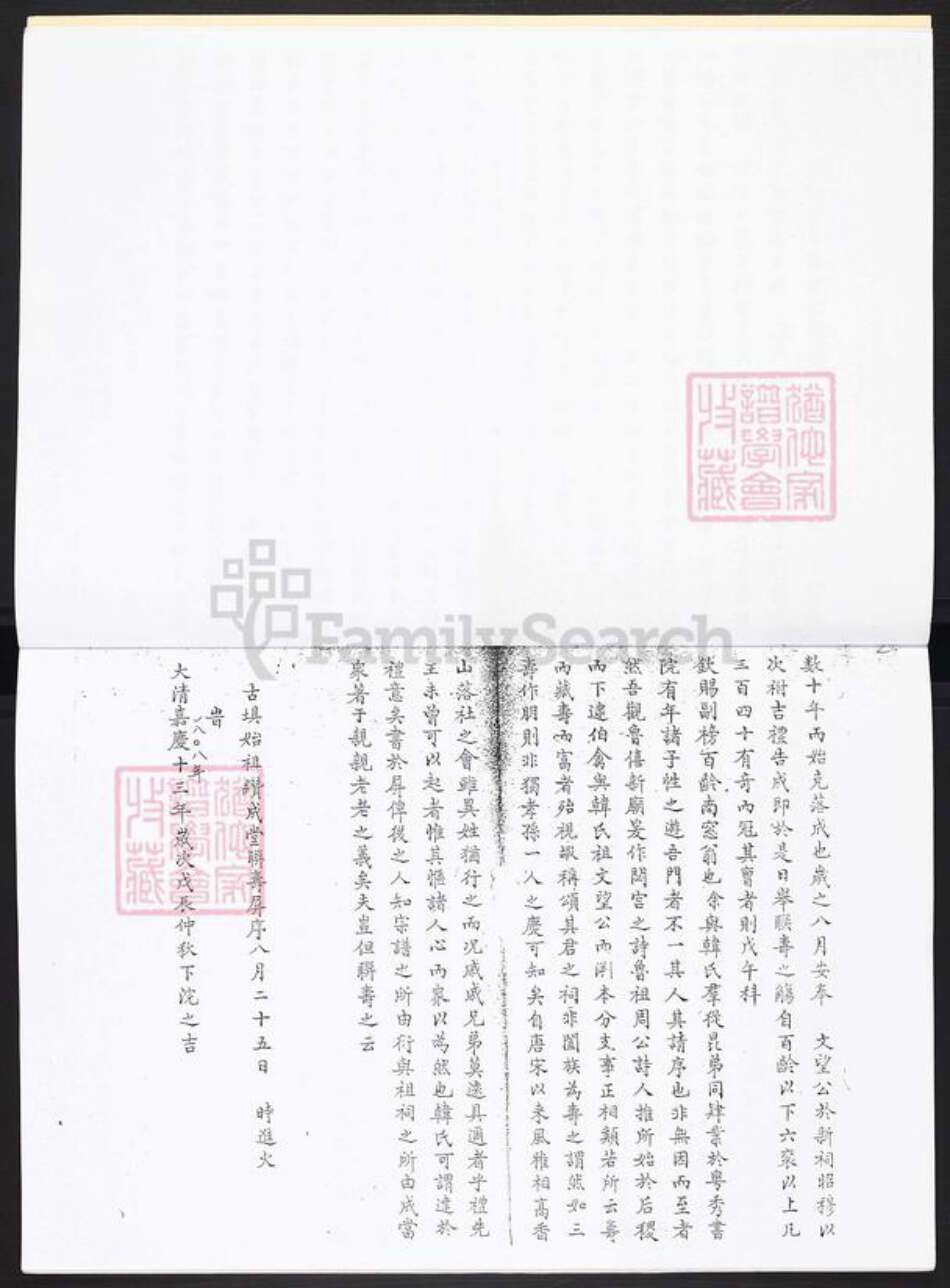 數十年而始克落成也歲之八月安奉 文望公於新祠昭穆以
次祔吉禮告成即於是日舉聯壽之觴自百齡以下六袠以上凡
三百四十有奇而冠其賓者則戊午科
欽賜副榜百齡南窓翁也余與韓氏羣從昆弟同肄業於粵秀書
院有年諸子姓之遊吾門者不一其人其請序也非無因而至者
然吾觀魯僖新廟爰作閟宮之詩魯祖周公詩人推所始於后稷
而下逮伯禽與韓氏祖文望公而溯本分支事正相類若所云壽
而臧壽而富者殆視嘏稱頌其君之詞非闔族為壽之謂然如三
壽作朋則非獨孝孫一人之慶可知矣自唐宋以來風雅相高香
山落社之會雖異姓猶行之而況戚戚兄弟莫遠具邇者乎禮先
王未曾可以起者惟其愜諸人心而衆以為然也韓氏可謂達於
禮意矣書於屏俾後之人知宗譜之所由衍與祖祠之所由成當
衆著于親親老老之義矣夫豈但聯壽之云
古塤始祖纘成堂聯壽屏序八月二十五日 時進火
旹
一八〇八年
大清嘉慶十三年歲次戊辰仲秋下浣之吉
猶他家
譜學會
收藏
猶他家
譜學會
收藏
FamilySearch